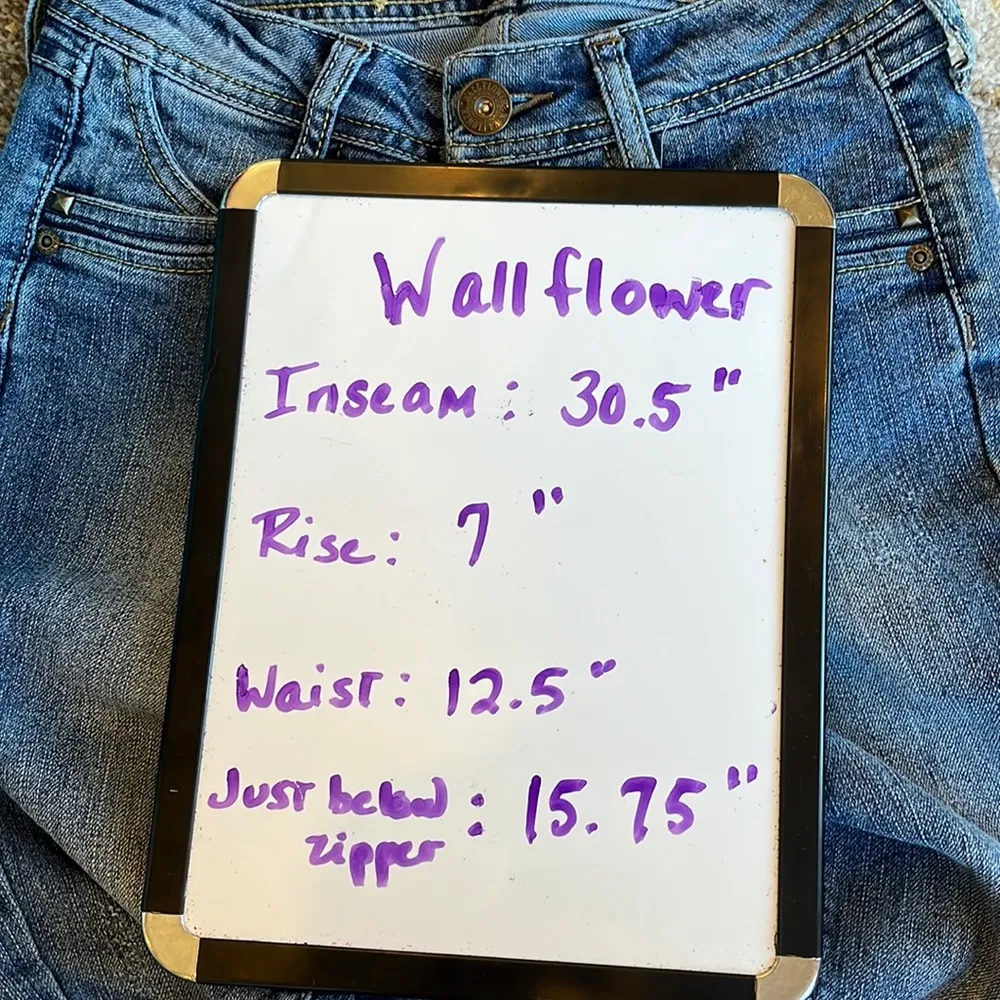 Wallflower
Inseam: 30.5"
Rise: 7"
Waist: 12.5"
Just below
zipper : 15.75"